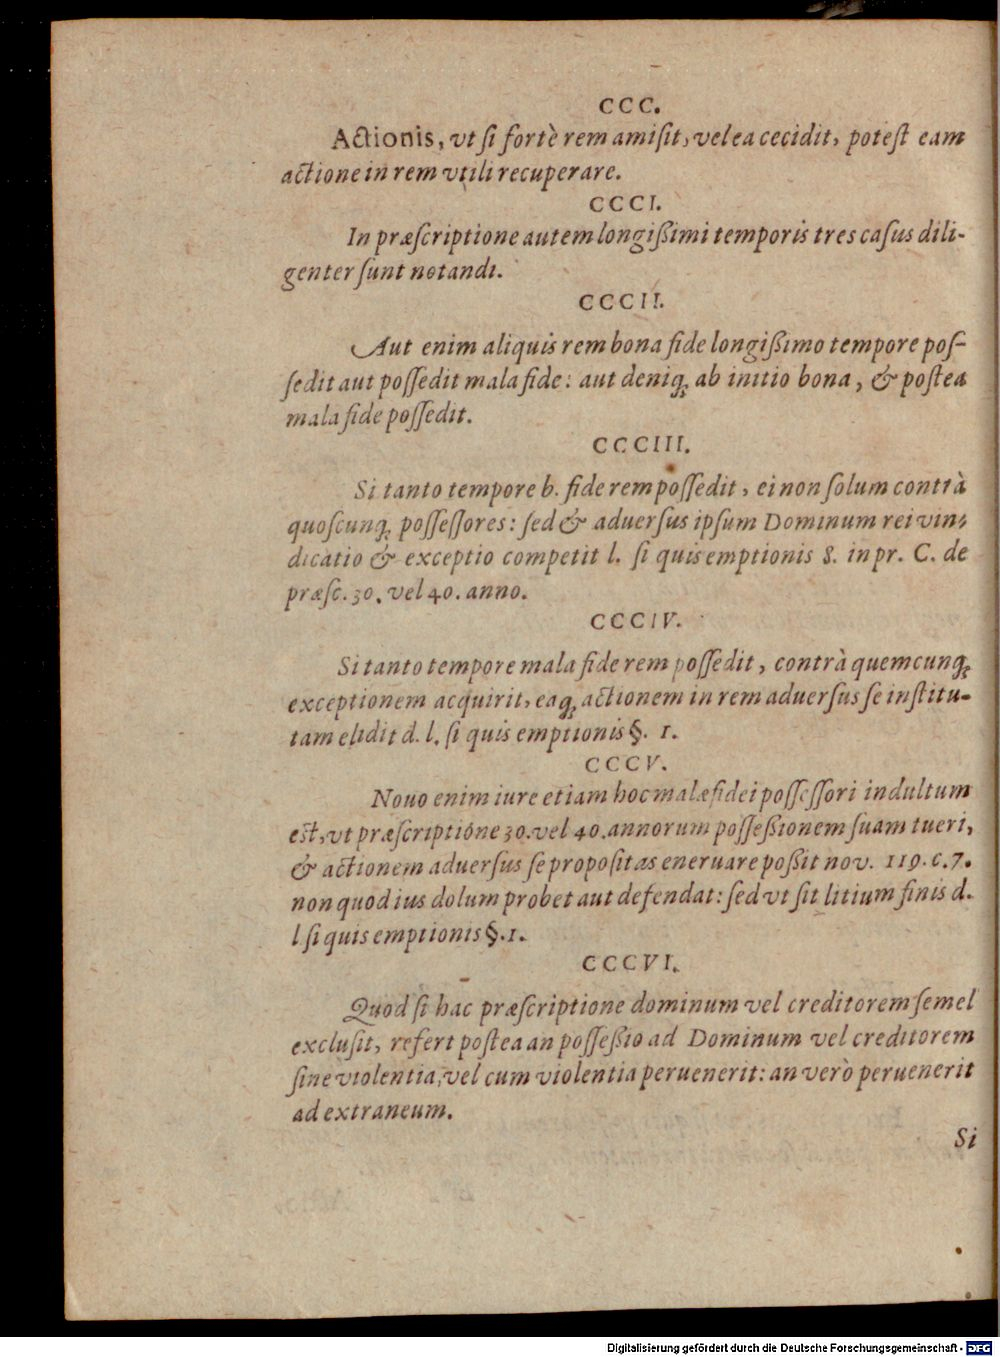 CCC.
Actionis, vt ſi fortè rem amiſit, vel ea cecidit, poteſt eam
actione in rem vtili recuperare.
CCCI.
In præſcriptione autem longißimi temporis tres caſus dili-
genter ſunt notandi.
CCCII.
Aut enim aliquis rem bona fide longißimo tempore poſ-
ſedit aut poſſedit mala fide: aut deniq; ab initio bona, & poſtea
mala fide poſſedit.
CCCIII.
Si tanto tempore b. fide rem poſſedit, ei non ſolum contrà
quoſcunq; poſſeſſores: ſed & aduerſus ipſum Dominum rei vin-
dicatio & exceptio competit l. ſi quis emptionis 8. in pr. C. de
præſc. 30. vel 40. anno.
CCCIV.
Si tanto tempore mala fide rem poſſedit, contrà quemcunq;
exceptionem acquirit, eaq; actionem in rem aduerſus ſe inſtitu-
tam elidit d. l. ſi quis emptionis §. 1.
CCCV.
Nouo enim iure etiam hoc malæ fidei poſſeſſori indultum
est, vt præſcriptióne 30. vel 40. annorum poſſeßionem ſuam tueri,
& actionem aduerſus ſe propoſitas eneruare poßit nov. 119. c. 7.
non quod ius dolum probet aut defendat: ſed vt ſit litium finis d.
l ſi quis emptionis §. 1.
CCCVI.
Quod ſi hac præſcriptione dominum vel creditorem ſemel
excluſit, refert poſtea an poſſeßio ad Dominum vel creditorem
ſine violentia, vel cum violentia peruenerit: an verò peruenerit
ad extraneum.
Si
Digitalisierung gefördert durch die Deutsche Forschungsgemeinschaft - DFG